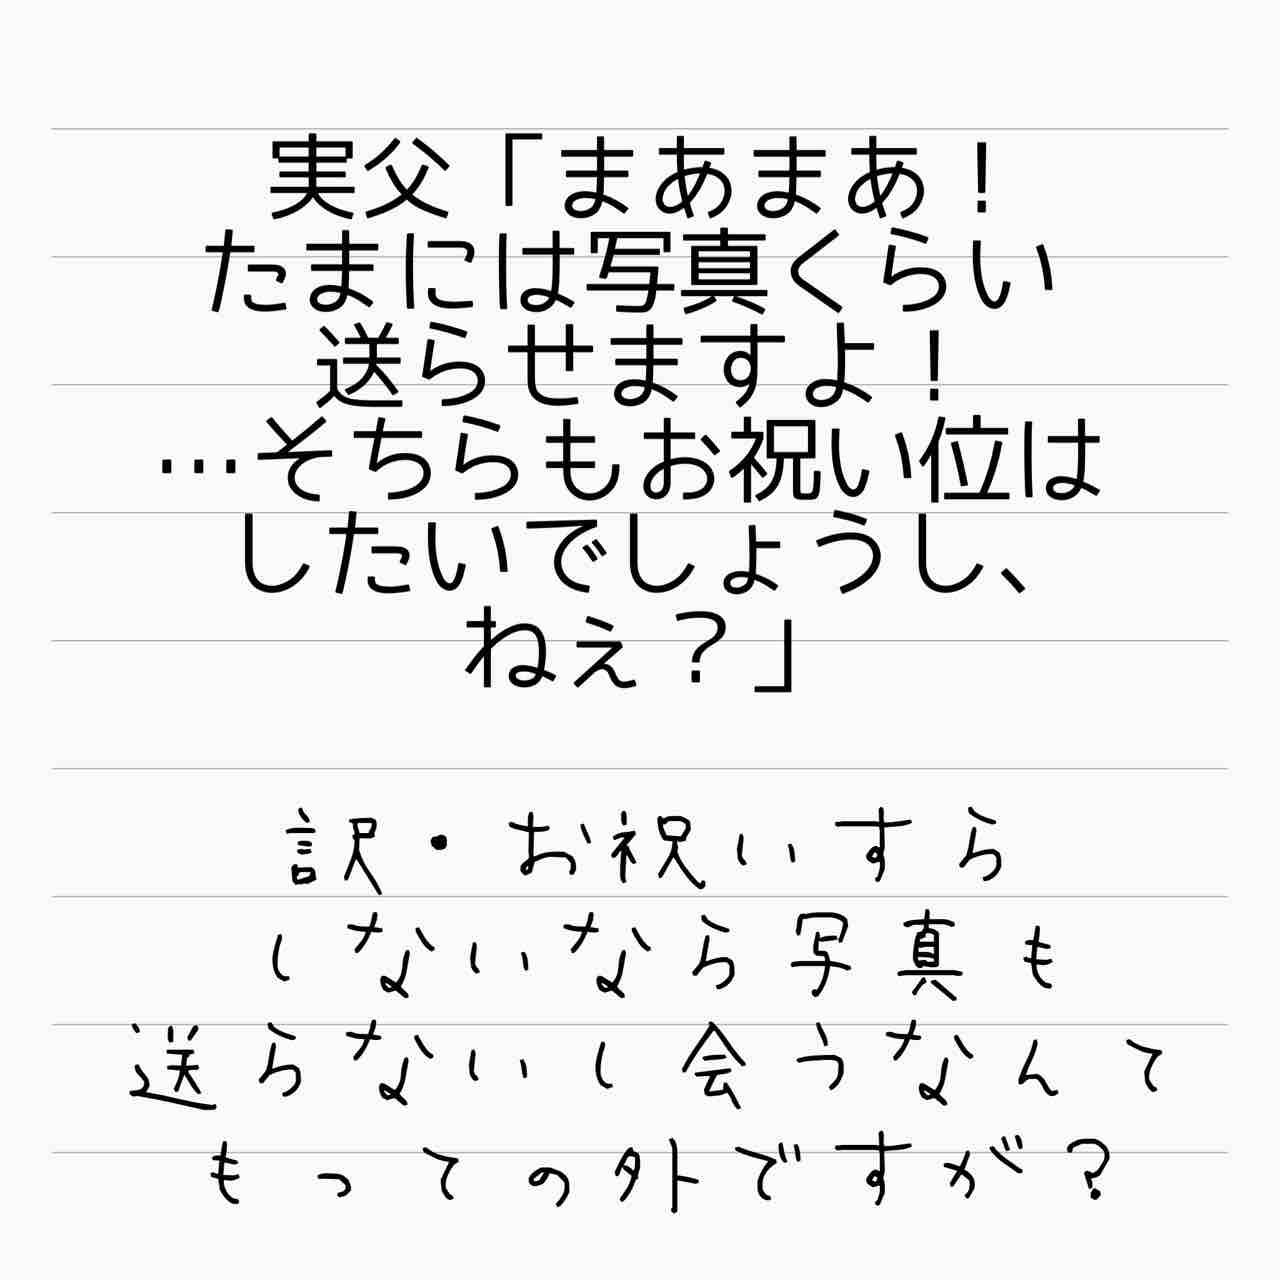 実父「まあまあ！
たまには写真くらい
送らせますよ！
…そちらもお祝い位は
したいでしょうし、
ねぇ？」
訳・お祝いすら
しないなら写真も
送らないし会うなんて
もっての外ですが？